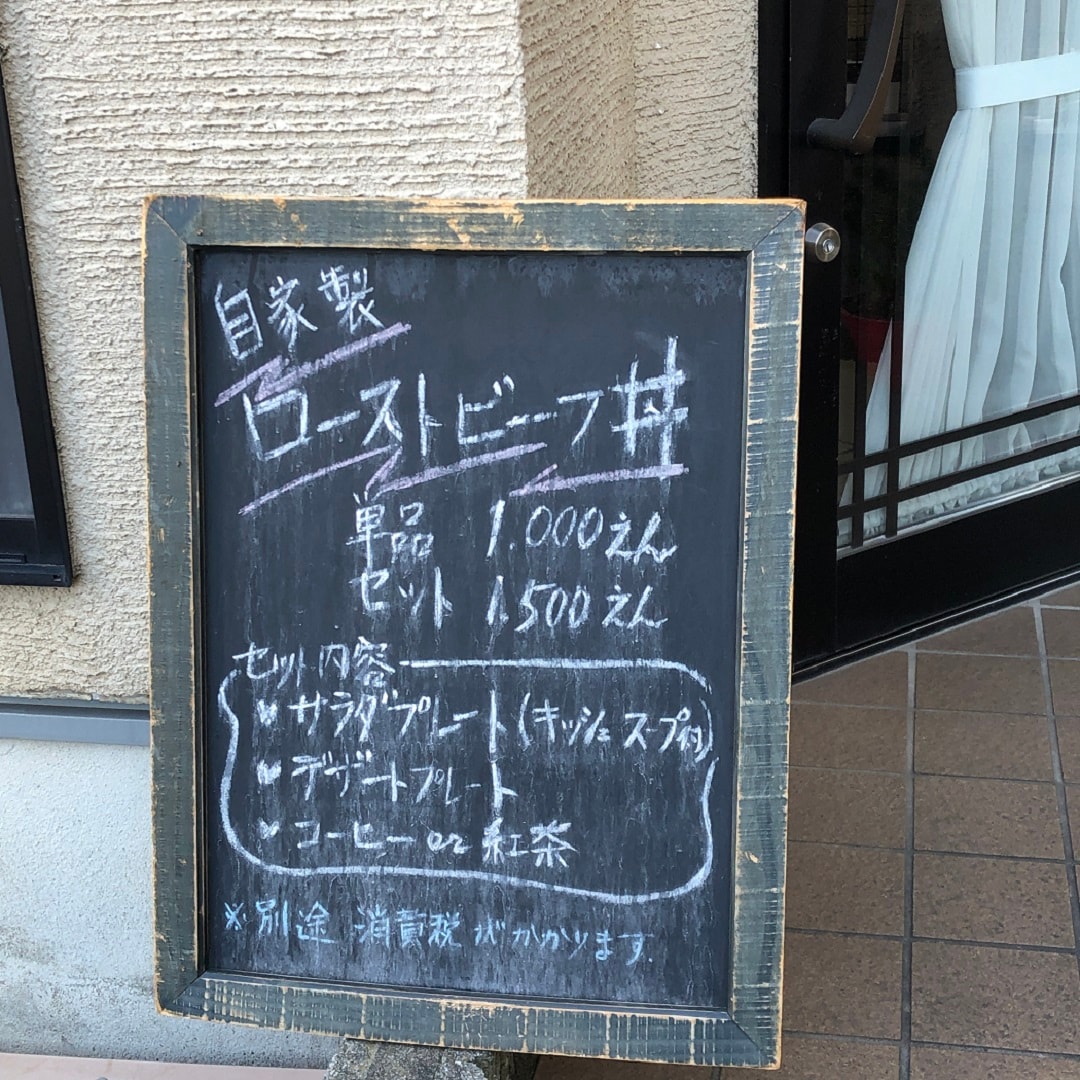 自家製
ローストビーフ丼
単品 1.000えん
セット 1.500えん
セット内容
♥サラダプレート(キッシュ スープ付)
♥デザートプレート
♥コーヒー or 紅茶
※別途 消費税がかかります.